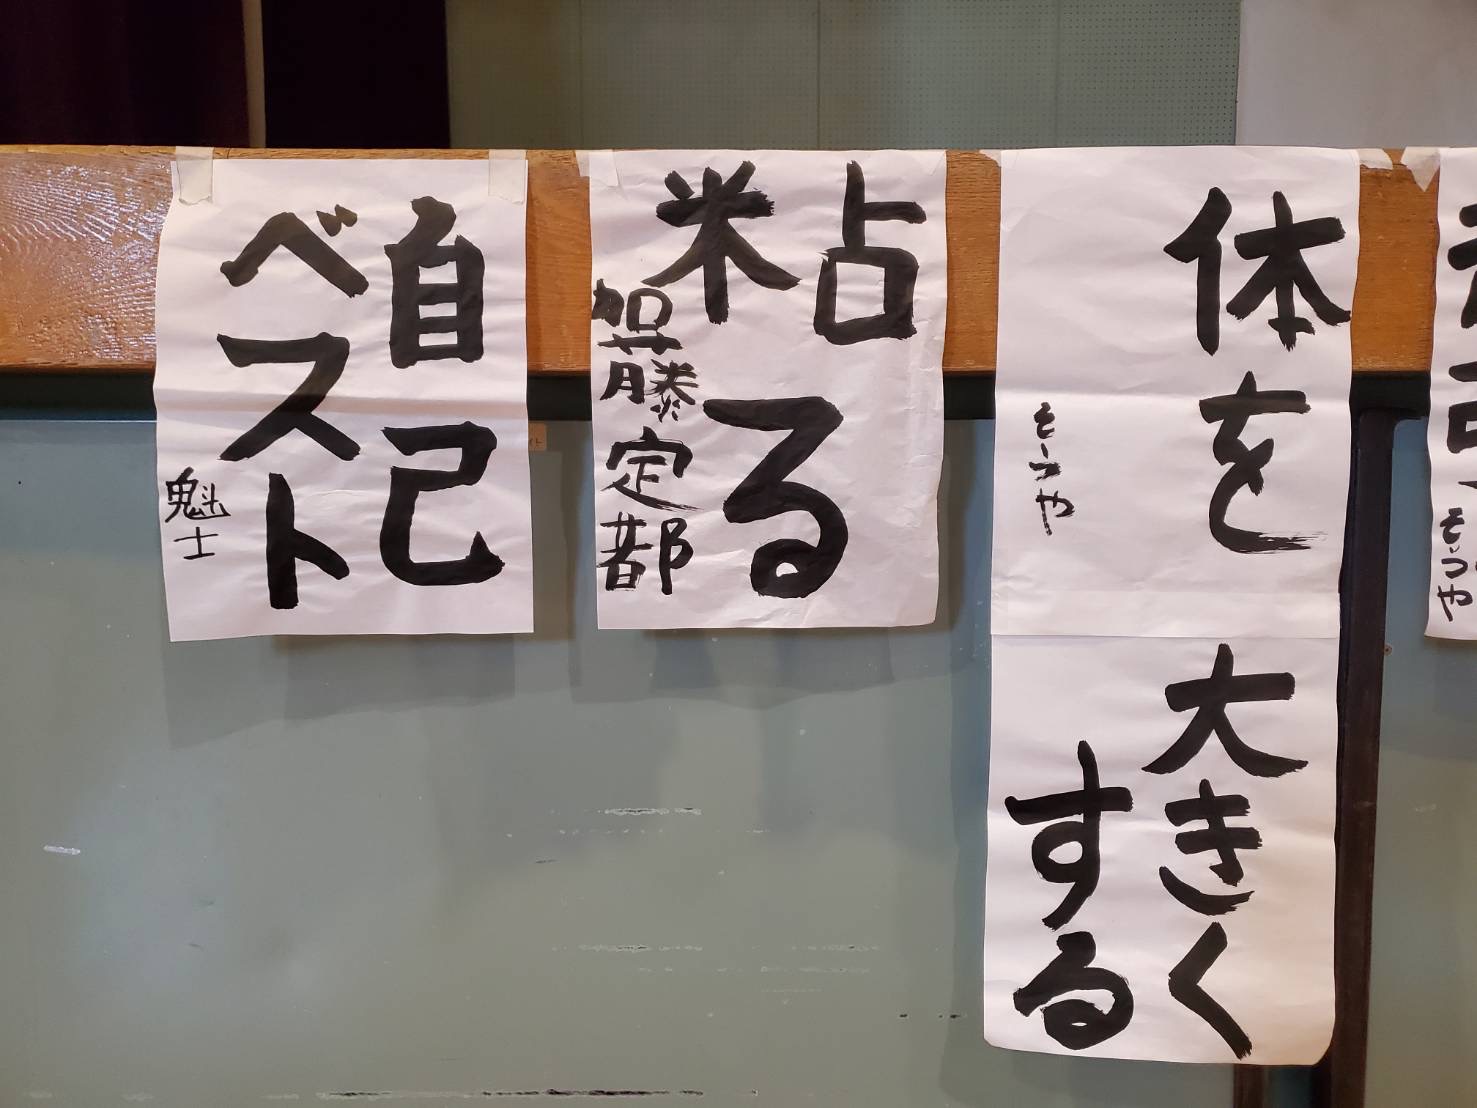 自己
ベスト
魁士
粘る
加藤定都
体を
大きく
する
そうや
そうや